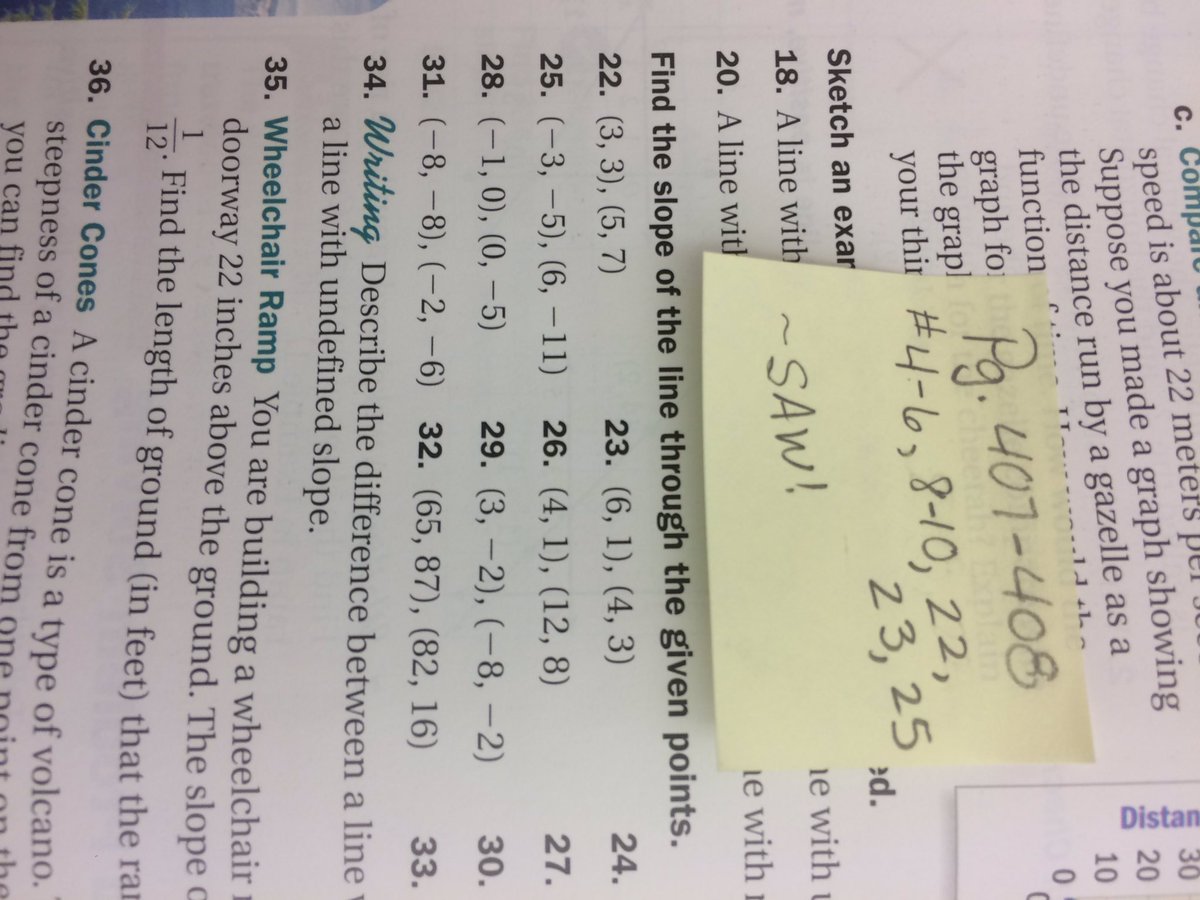 c.
speed is about 22 meters per
Suppose you made a graph showing
the distance run by a gazelle as a
function
graph for
the graph
your
Pg. 407-408
#4-6, 8-10, 22,
23, 25
~SAW!
Distan
30
20
10
0
0
Sketch an
18. A line with
20. A line with
Find the slope of the line through the given points.
22. (3, 3), (5, 7) 23. (6, 1), (4, 3) 24.
25. (−3, −5), (6, −11) 26. (4, 1), (12, 8) 27.
28. (−1, 0), (0, −5) 29. (3, −2), (−8, −2) 30.
31. (−8, −8), (−2, −6) 32. (65, 87), (82, 16) 33.
34. Writing Describe the difference between a line
a line with undefined slope.
35. Wheelchair Ramp You are building a wheelchair
doorway 22 inches above the ground. The slope
1/12. Find the length of ground (in feet) that the
36. Cinder Cones A cinder cone is a type of volcano.
steepness of a cinder cone from one point on the
you can find the